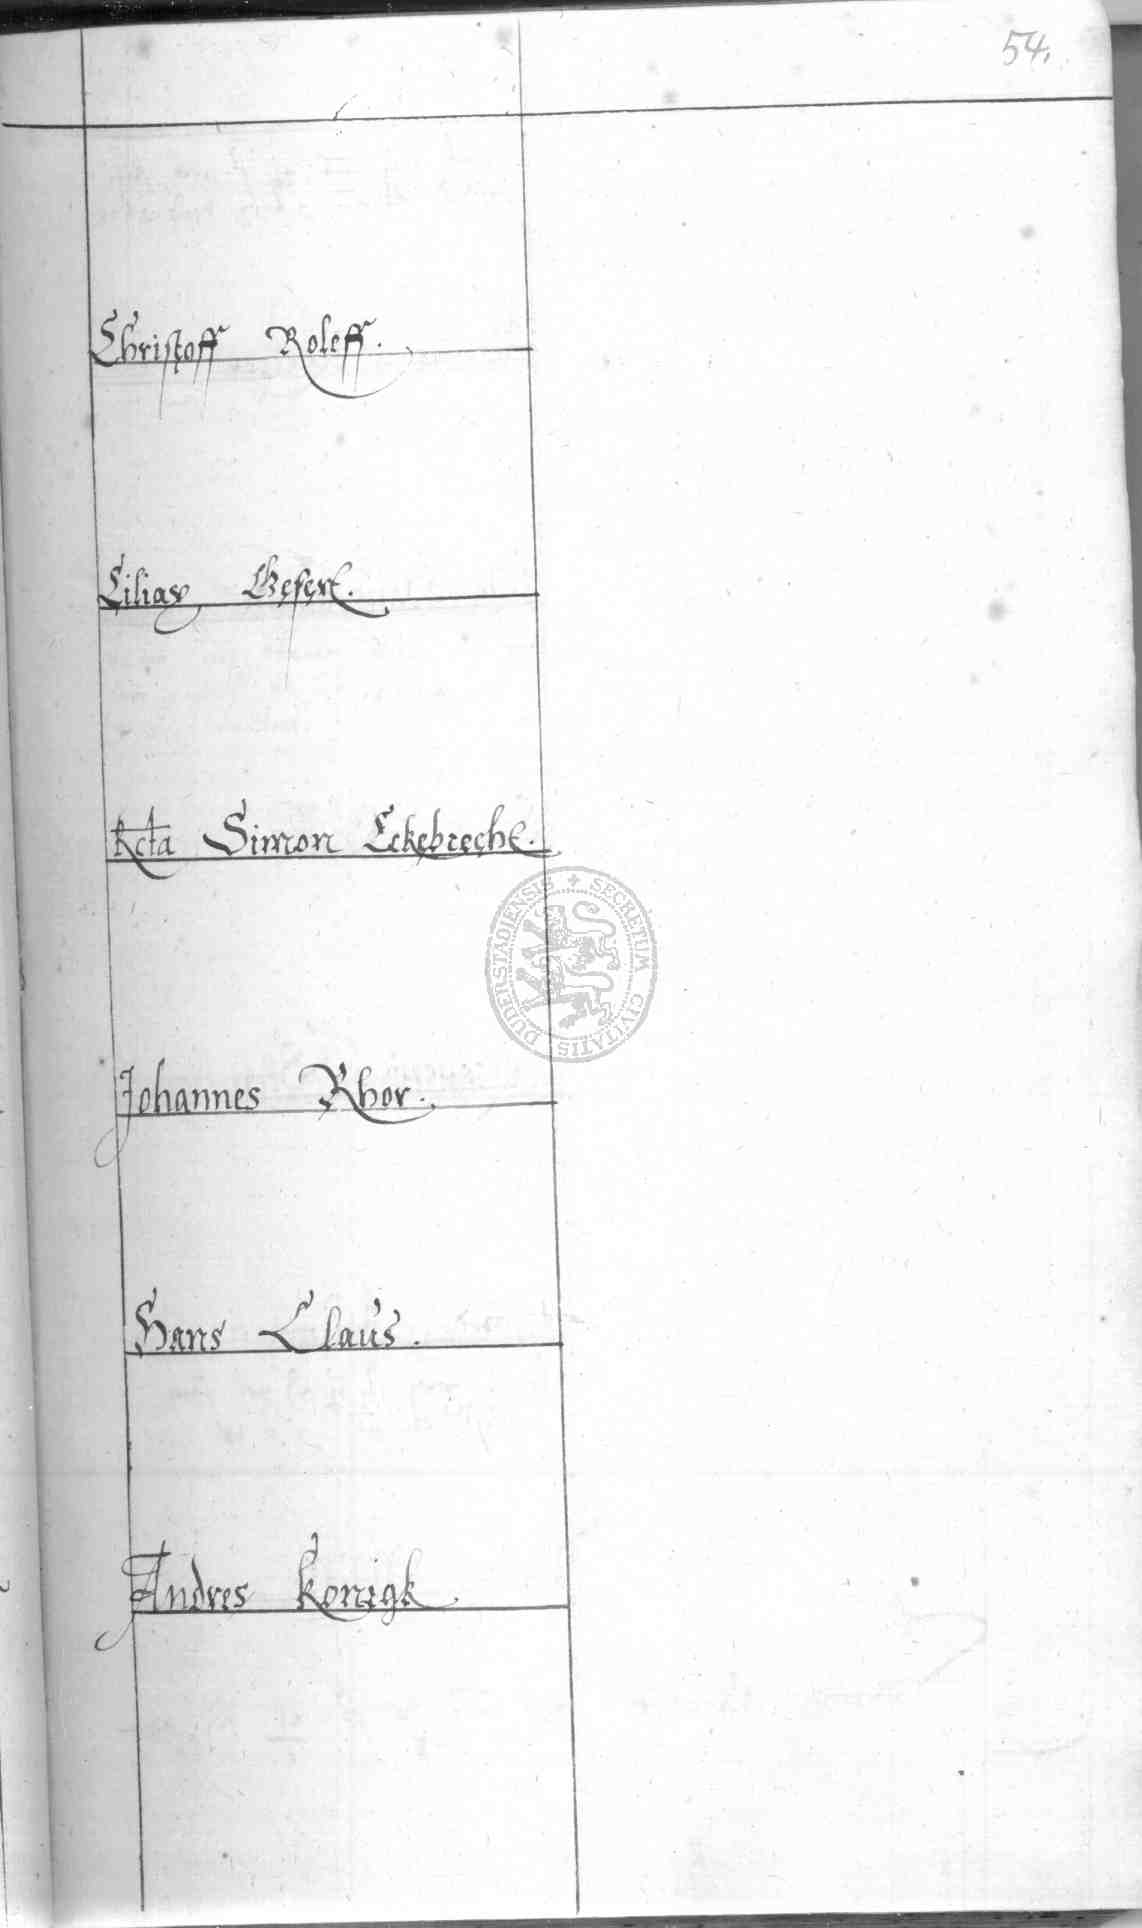 54.
Christoff Roleff.
Simon Eckebrecht.
Johannes Rhor.
Hans Claus.
Andres Konigk
SECRETUM CIVITATIS DUDERSTADIENSIS